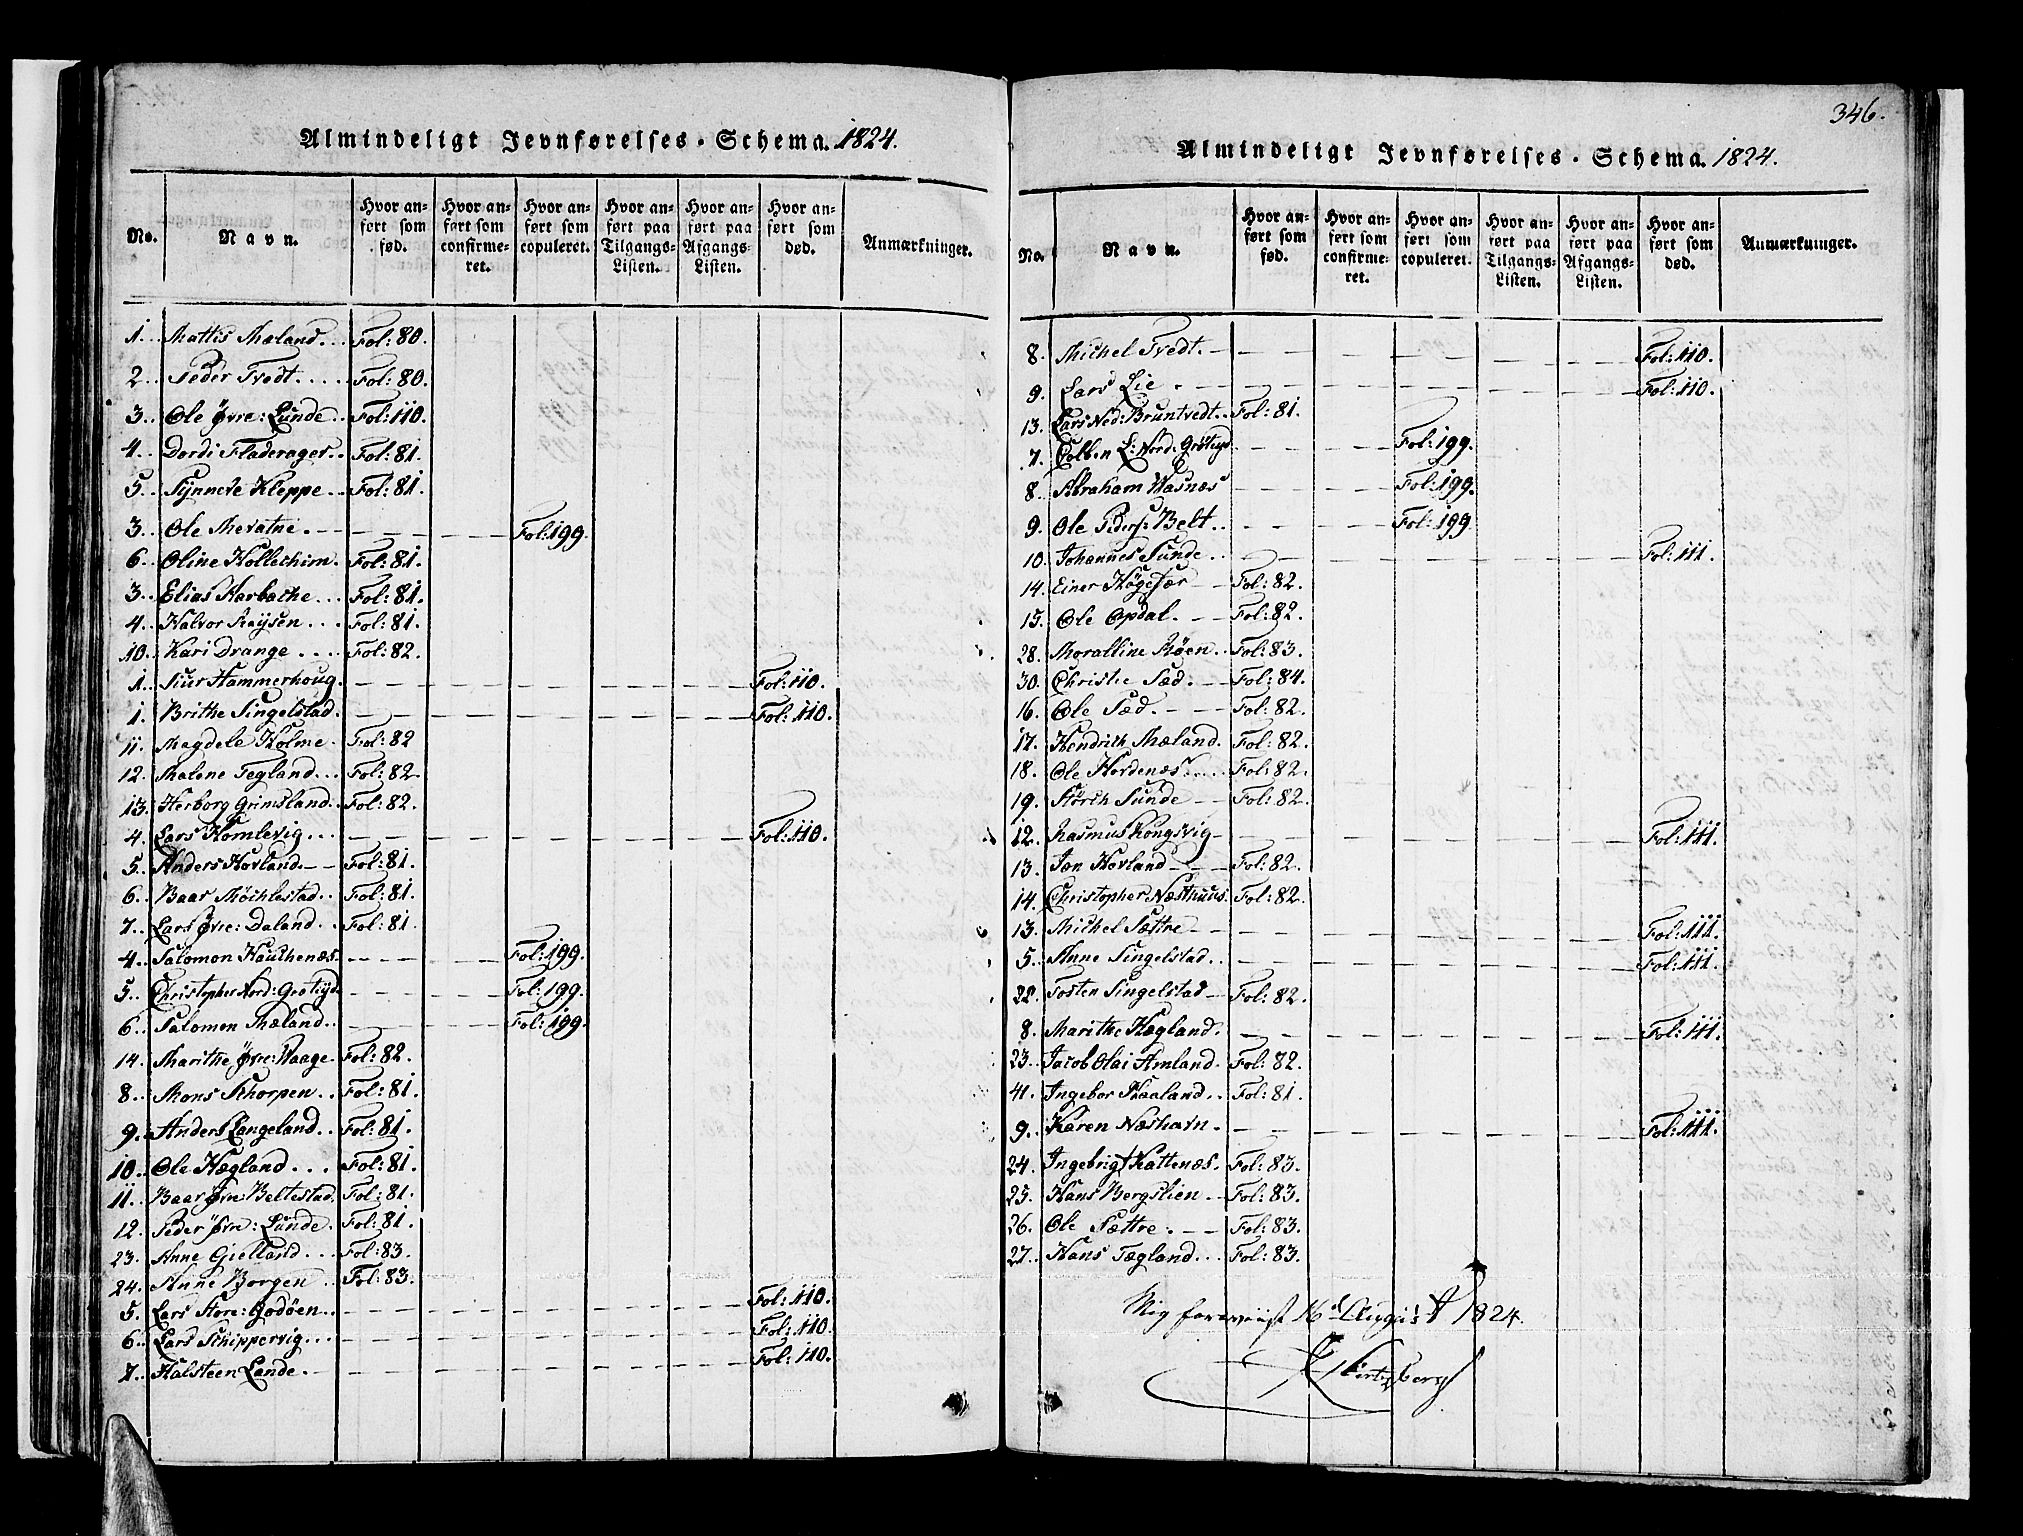 Almindeligt Jevnførelses-Schema. 1824.
No. Navn. Hvor anført som fød. Hvor anført som confirmeret. Hvor anført som copuleret. Hvor anført paa Tilgangs-Listen. Hvor anført paa Afgangs-Listen. Hvor anført som død. Anmærkninger.
1. Mattis Mæland. Fol: 80.
2. Peder Tvedt. Fol: 80.
3. Ole Øvre: Lunde. Fol: 110.
4. Dordi Fladerager. Fol: 81.
5. Synneve Kleppe. Fol: 81.
3. Ole Mevatne. Fol: 199.
6. Oline Holleshim. Fol: 81.
3. Elias Aarbathe. Fol: 81.
4. Halvor Røysen. Fol: 81.
10. Kari Drange. Fol: 82.
1. Siur Hammerhoug. Fol: 110.
1. Brithe Singelstad. Fol: 110.
11. Magdele Holme. Fol: 82
12. Malene Tegland. Fol: 82.
13. Herborg Grimsland. Fol: 82.
4. Lars Homlevig. Fol: 110.
5. Anders Hovland. Fol: 81.
6. Baar Møchlestad. Fol: 81.
7. Lars Øvre: Daland. Fol: 81.
4. Salomon Hauchenæs. Fol: 199.
5. Christopher Nord: Fol: 199.
6. Salomon Mæland. Fol: 199.
14. Marithe Øvre: Waage. Fol: 82.
8. Mons Skorpen. Fol: 81.
9. Anders Langeland. Fol: 81.
10. Ole Hægland. Fol: 81.
11. Baar Øvre: Beltestad. Fol: 81.
12. Peder Øvre: Lunde. Fol: 81.
23. Anne Gielland. Fol: 83.
24. Anne Borgen. Fol: 83.
5. Lars Store: Godøen. Fol: 110.
6. Lars Schippervig. Fol: 110.
7. Halsteen Lande. Fol: 110.
346.
Almindeligt Jevnførelses-Schema. 1824.
No. Navn. Hvor anført som fød. Hvor anført som confirmeret. Hvor anført som copuleret. Hvor anført paa Tilgangs-Listen. Hvor anført paa Afgangs-Listen. Hvor anført som død. Anmærkninger.
8. Michel Tvedt. Fol: 110.
9. Lars Lie. Fol: 110.
13. Lars Ned: Bruntvedt. Fol: 81.
7. L: Nord. Fol: 199.
8. Abraham Wasnæs Fol: 199.
9. Ole Peders: Belt. Fol: 199
10. Johannes Sunde. Fol: 111.
14. Einer Høgesær Fol: 82.
15. Ole Opdal. Fol: 82.
28. Moralline Røen. Fol: 83.
30. Christie Sæd. Fol: 84.
16. Ole Sæd. Fol: 82.
17. Hendrich Mæland. Fol: 82.
18. Ole Hordenæs. Fol: 82.
19. Størch Sunde Fol: 82.
12. Rasmus Kongsvig Fol: 111.
13. Jon Hovland Fol: 82.
14. Christopher Næsthuus. Fol: 82.
13. Michel Sættre Fol: 111.
5. Anne Singelstad. Fol: 111.
22. Tosten Singelstad Fol: 82.
8. Marithe Hægland. Fol: 111.
23. Jacob Olai Amland. Fol: 82.
41. Ingebor Haaland. Fol: 81.
9. Karen Næshavn. Fol: 111.
24. Ingebrigt Kattenæs. Fol: 83.
25. Hans Bergslien Fol: 83.
26. Ole Sættre. Fol: 83.
27. Hans Tægland. Fol: 83.
Mig foreviist 16d August 1824.
Hertzberg